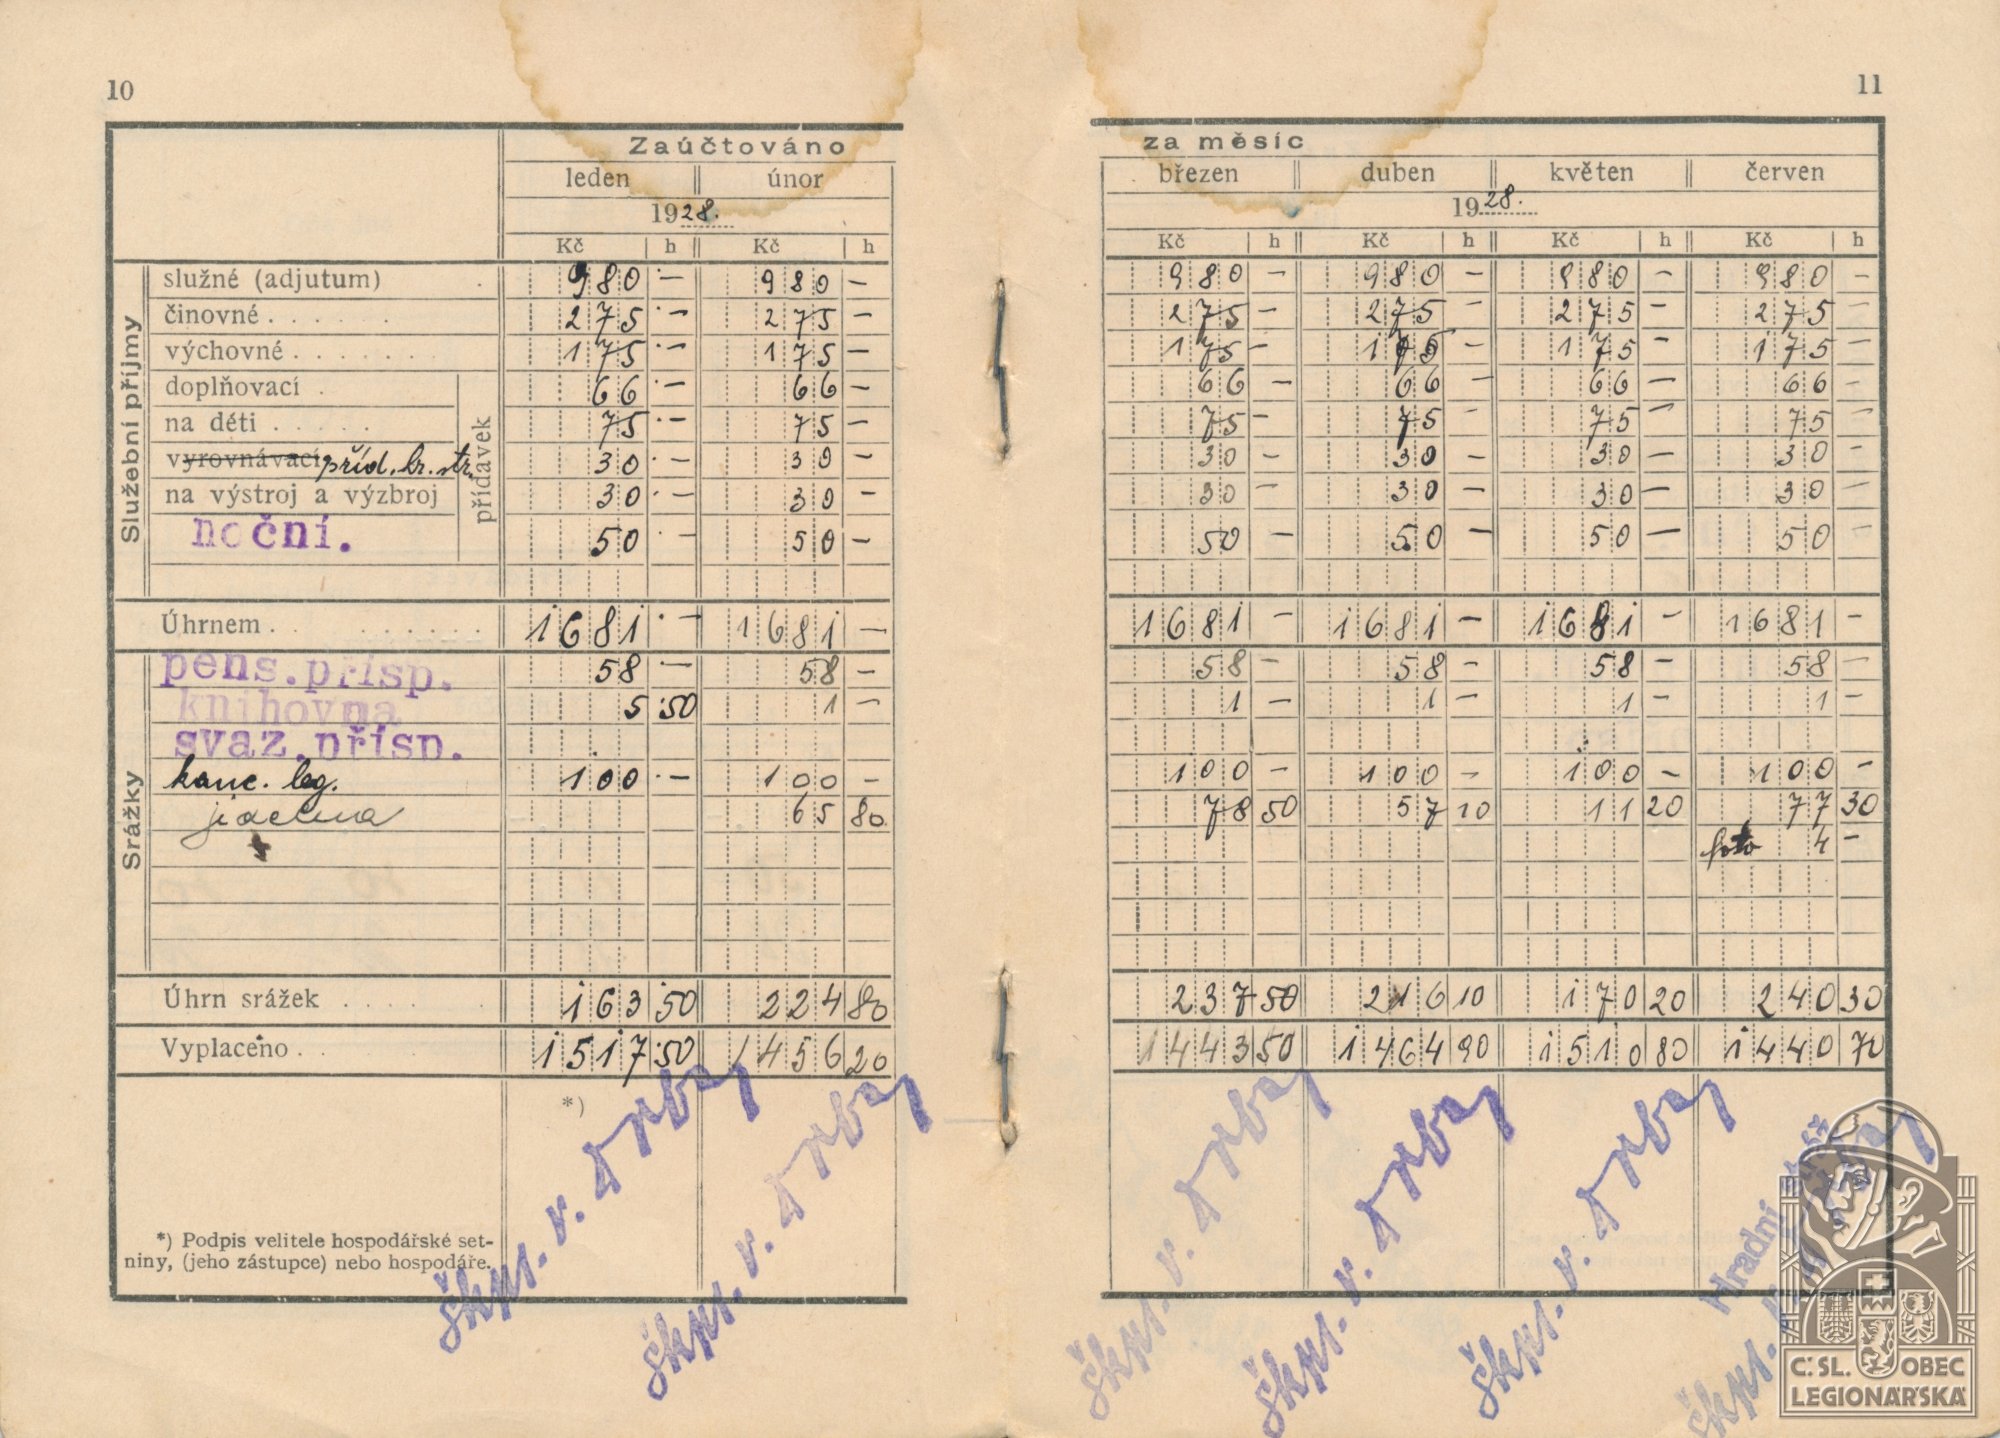 10
Zaúčtováno
leden únor
1928.
Kč h Kč h
Služební příjmy
služné (adjutum) 980 ·— 980 —
činovné . . . . . . 275 ·— 275 —
výchovné . . . . . . 175 ·— 175 —
doplňovací . 66 ·— 66 —
na děti . . . . . 75 ·— 75 —
vyrovnávací příd. hr. str. 30 ·— 30 —
na výstroj a výzbroj 30 ·— 30 —
přídavek
noční. 50 ·— 50 —
Úhrnem . . . . . . . . . . 1681 ·— 1681 —
Srážky
pens. přísp. 58 — 58 —
knihovna 5 50 1 —
svaz. přísp.
kanc. leg. 100 ·— 100 —
jídelna 65 80
Úhrn srážek . . . . 163 50 224 80
Vyplaceno . . . . 1517 50 1456 20
*)
*) Podpis velitele hospodářské set-
niny, (jeho zástupce) nebo hospodáře.
škpt. v. Drbaj
škpt. v. Drbaj
11
za měsíc
březen duben květen červen
1928.
Kč h Kč h Kč h Kč h
980 — 980 — 980 — 980 —
275 — 275 — 275 — 275 —
175 — 175 — 175 — 175 —
66 — 66 — 66 — 66 —
75 — 75 — 75 — 75 —
30 — 30 — 30 — 30 —
30 — 30 — 30 — 30 —
50 — 50 — 50 — 50 —
1681 — 1681 — 1681 — 1681 —
58 — 58 — 58 — 58 —
1 — 1 — 1 — 1 —
100 — 100 — 100 — 100 —
78 50 57 10 11 20 77 30
foto 4 —
237 50 216 10 170 20 240 30
1443 50 1464 90 1510 80 1440 70
škpt. v. Drbaj
škpt. v. Drbaj
škpt. v. Drbaj
Hradní
škpt.
Č. SL. OBEC
LEGIONÁŘSKÁ